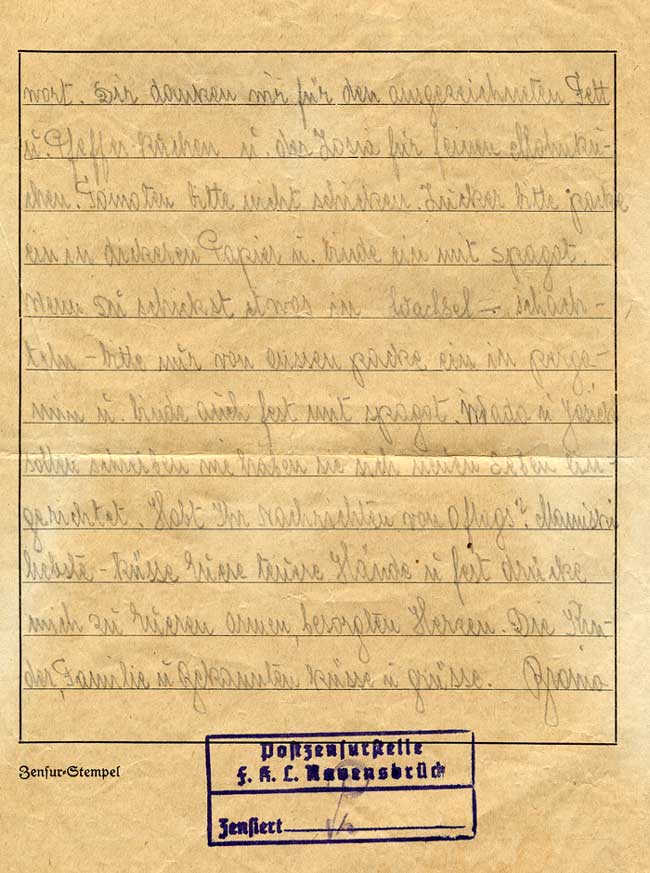 danken ihr für den ausgezeichneten Fett
u. Pfefferkuchen u. der Zosia für seinen Mohnku-
chen. Tomaten bitte nicht schicken. Zucker bitte packe
ein in dickeren Papier u. binde ein mit Spagat.
Wenn du schickst etwas in schach-
teln - bitte nur von aussen packe ein in perga-
min u. binde auch fest mit Spagat. u
sollen schreiben wie haben sie sich ein-
gerichtet. Habt Ihr Nachrichten von Oflags?
liebste - küsse Euere teuere Hände u fest drücke
mich zu Eueren armen, besorgten Herzen. Die Kin-
der, Familie u Bekannten küsse u grüsse.
Zensur-Stempel
Postzensurstelle
F. K. L. Ravensbrück
Zensiert